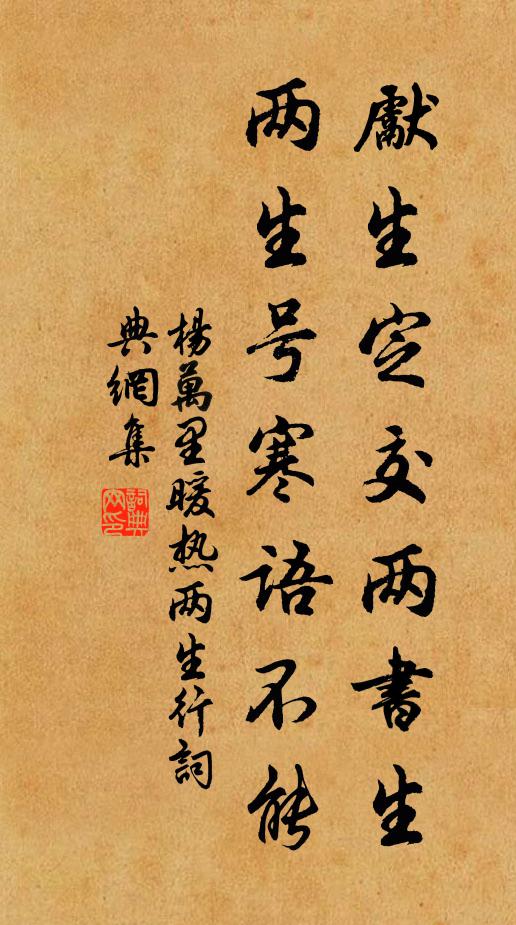 獻生定交两書生
两生号寒語不能
楊萬里暖热两生行詞
典網集
詞典网印